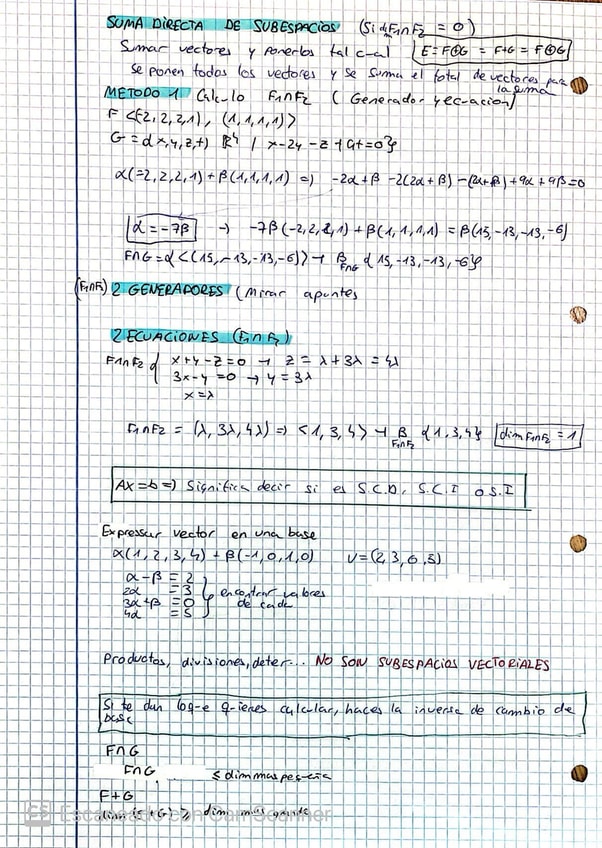 SUMA DIRECTA DE SUBESPACIOS (Si dim F₁∩F₂ = 0)
Sumar vectores y ponerlos tal cual E=F⊕G = F+G = F⊕G
Se ponen todos los vectores y se suma el total de vectores para la suma
METODO 1 Calculo F₁∩F₂ (Generador y ecuacion)
F <(-2,2,2,1), (1,1,1,1)>
G = {x,y,z,t) ℝ⁴ / x-2y-z+9t=0}
α(-2,2,2,1)+β(1,1,1,1) => -2α+β -2(2α+β)-(2α+β)+9α+9β=0
α=-7β → -7β(-2,2,2,1)+β(1,1,1,1) = β(15,-13,-13,-6)
F∩G={<(15,-13,-13,-6)> → β F∩G {15,-13,-13,-6}
(F₁∩F₂) 2 GENERADORES (Mirar apuntes
2 ECUACIONES (F₁∩F₂)
F₁∩F₂ { x+y-z=0 → z=λ+3λ=4λ
3x-y=0 → y=3λ
x=λ
F₁∩F₂ = (λ,3λ,4λ) => <1,3,4> → β F₁∩F₂ {1,3,4} dim F₁∩F₂ = 1
AX=b => Significa decir si es S.C.D, S.C.I o S.I
Expresar vector en una base
α(1,2,3,4)+β(-1,0,1,0) V=(2,3,0,5)
α-β = 2
2α = 3 encontrar valores
3α+β = 0 de cada
4α = 5
Productos, divisiones, deter... NO SON SUBESPACIOS VECTORIALES
Si te dan lo que quieres calcular, haces la inversa de cambio de base
F∩G
F∩G ≤ dim mas pequeña
F+G
dim(F+G) ≥ dim mas grande
CS Escaneado con CamScanner